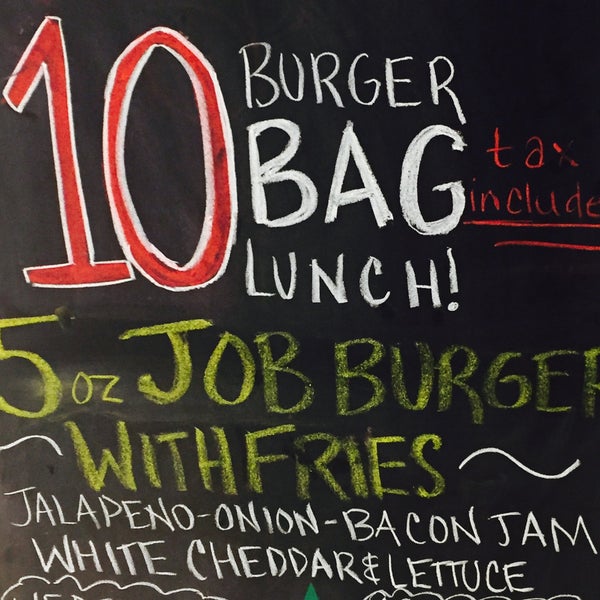 10 BURGER
BAG
LUNCH!
tax
include
5 oz JOB BURGER
WITH FRIES
JALAPENO-ONION-BACON JAM
WHITE CHEDDAR & LETTUCE